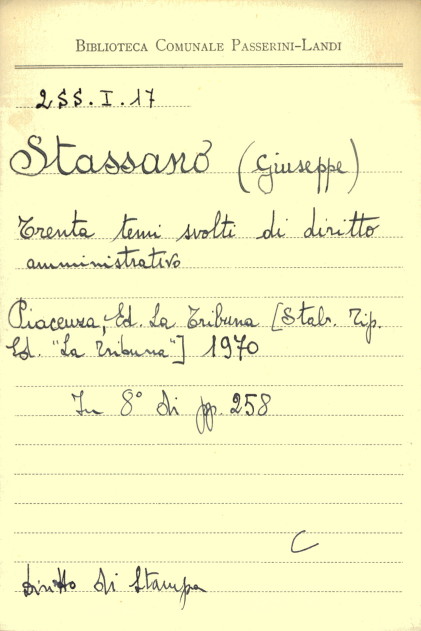 BIBLIOTECA COMUNALE PASSERINI-LANDI
255.I.17
Stassano (Giuseppe)
Trenta temi svolti di diritto
amministrativo
Piacenza, Ed. La Tribuna [Stab. Tip.
Ed. "La Tribuna"] 1970
In 8° di pp. 258
C
Diritto di Stampa